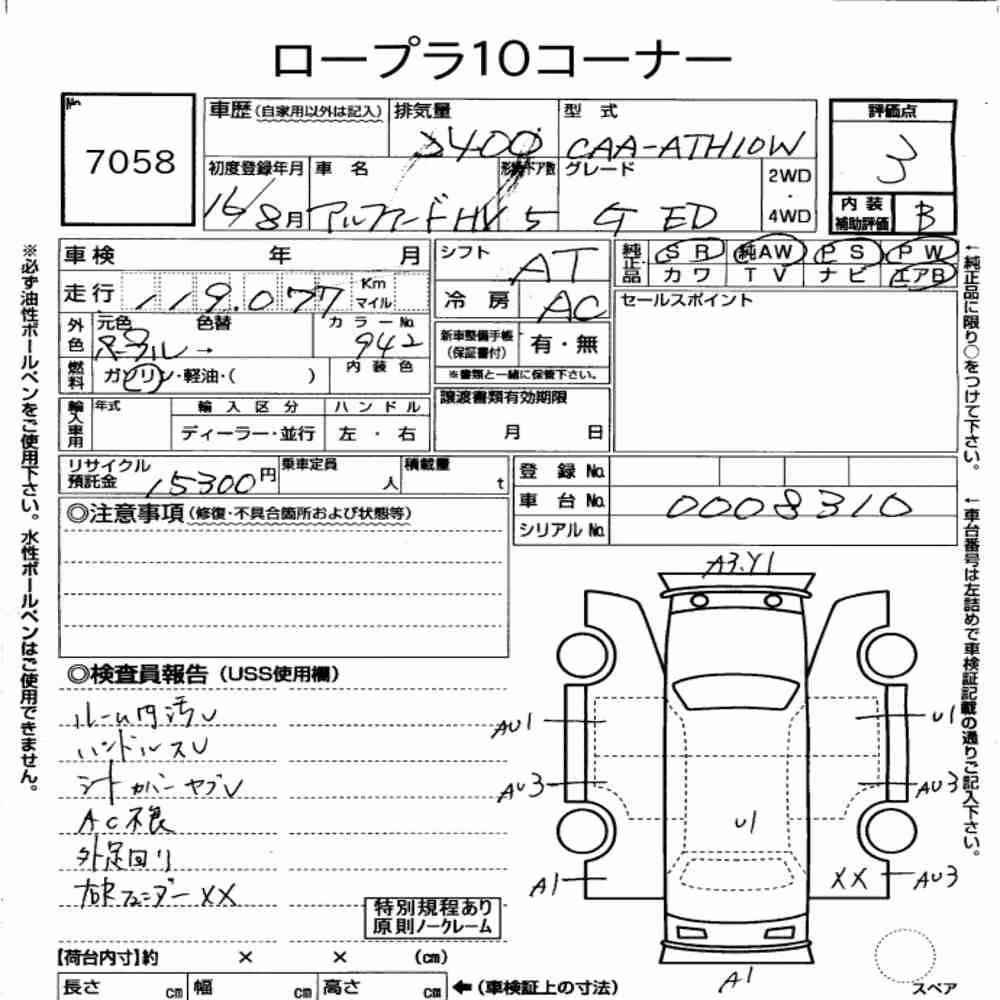 ロープラ10コーナー
No.
7058
車歴(自家用以外は記入)
排気量
2400
型 式
CAA-ATH10W
評価点
3
初度登録年月
16/8月
車 名
アルファードHV
形状ドア数
5
グレード
G ED
2WD
・
4WD
内 装
補助評価
B
車検 年 月
シフト
AT
純正品
SR 純AW PS PW
カワ TV ナビ エアB
走行 119.077 Km
マイル
冷 房
AC
セールスポイント
外色
元色 色替
パール →
カラーNo.
942
新車整備手帳
(保証書付)
有・無
※書類と一緒に保管下さい。
燃料
ガソリン・軽油・( )
内 装 色
輸入車用
年式
輸 入 区 分
ハ ン ド ル
ディーラー・並行
左 ・ 右
譲渡書類有効期限
月 日
リサイクル
預託金
15300円
乗車定員
人
積載量
t
登 録 No.
車 台 No.
0008310
シリアル No.
◎注意事項(修復・不具合箇所および状態等)
◎検査員報告(USS使用欄)
ルーム内汚レ
ハンドルスレ
シートカバーヤブレ
AC不良
外足回り
右Rフェンダー XX
特別規程あり
原則ノークレーム
【荷台内寸】約 × × (cm)
長さ cm 幅 cm 高さ cm
←(車検証上の寸法)
A3.Y1
AU1
U1
AU3
AU3
U1
A1
XX
AU3
A1
スペア
※必ず油性ボールペンをご使用下さい。水性ボールペンはご使用できません。
←純正品に限り○をつけて下さい。
←車台番号は左詰めで車検証記載の通りご記入下さい。